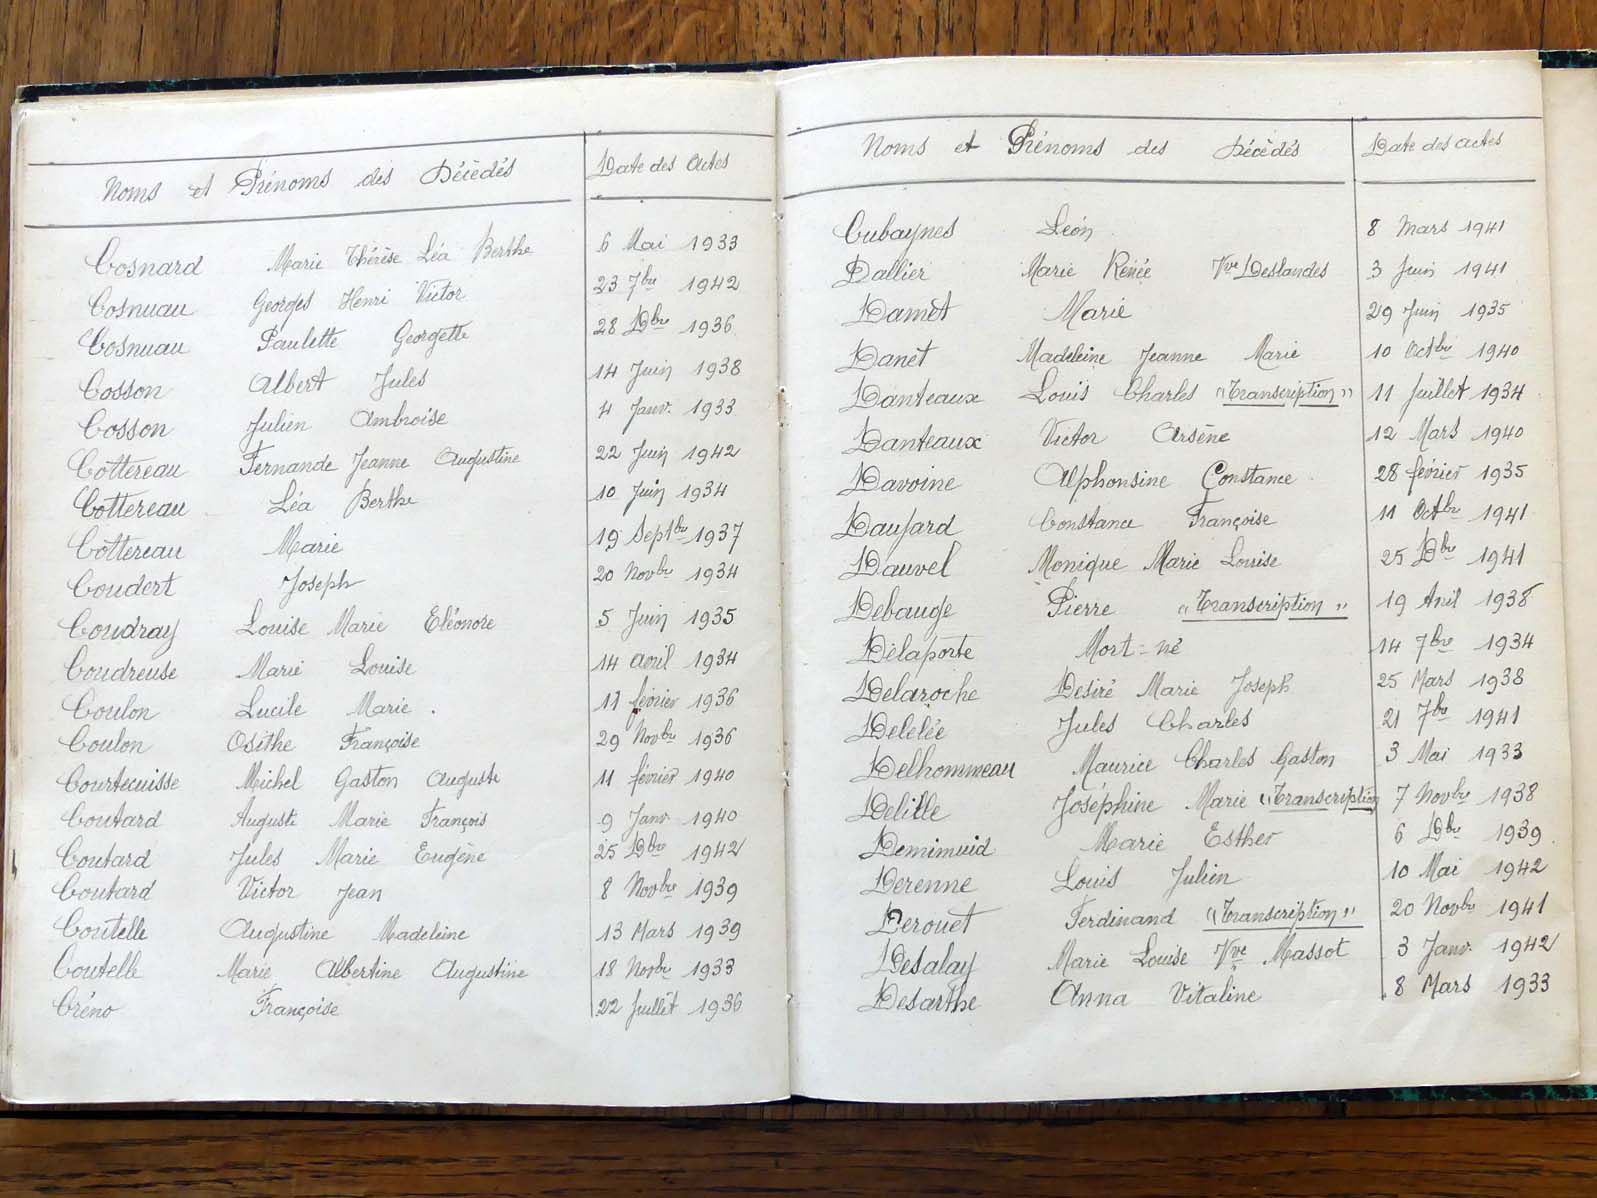 Noms et Prénoms des Décédés Date des actes
Cosnard Marie Thérèse Léa Berthe 6 Mai 1933
Cosnuau Georges Henri Victor 23 7bre 1942
Cosnuau Paulette Georgette 28 Dbre 1936
Cosson Albert Jules 14 Juin 1938
Cosson Julien Ambroise 4 Janv. 1933
Cottereau Fernande Jeanne Augustine 22 Juin 1942
Cottereau Léa Berthe 10 Juin 1934
Cottereau Marie 19 Septbre 1937
Coudert Joseph 20 Novbre 1934
Coudray Louise Marie Eléonore 5 Juin 1935
Coudreuse Marie Louise 14 avril 1934
Coulon Lucile Marie. 11 février 1936
Coulon Osithe Françoise 29 Novbre 1936
Courtecuisse Michel Gaston Auguste 11 février 1940
Coutard Auguste Marie François 9 Janv 1940
Coutard Jules Marie Eugène 25 Dbre 1942
Coutard Victor Jean 8 Novbre 1939
Coutelle Augustine Madeleine 13 Mars 1939
Coutelle Marie Albertine Augustine 18 Novbre 1933
Créno Françoise 22 Juillet 1936
Noms et Prénoms des Décédés Date des actes
Cubaynes Léon 8 Mars 1941
Dallier Marie Renée Vve Deslandes 3 Juin 1941
Damet Marie 29 Juin 1935
Danet Madeleine Jeanne Marie 10 Octbre 1940
Danteaux Louis Charles "Transcription" 11 Juillet 1934
Danteaux Victor Arsène 12 Mars 1940
Davoine Alphonsine Constance 28 février 1935
Daujard Constance Françoise 11 Octbre 1941
Dauvel Monique Marie Louise 25 Dbre 1941
Debauge Pierre "Transcription" 19 Avril 1938
Delaporte Mort-né 14 7bre 1934
Delaroche Desiré Marie Joseph 25 Mars 1938
Delélée Jules Charles 21 7bre 1941
Delhommeau Maurice Charles Gaston 3 Mai 1933
Delille Joséphine Marie "Transcription 7 Novbre 1938
Demimuid Marie Esther 6 Dbre 1939
Derenne Louis Julien 10 Mai 1942
Derouet Ferdinand "Transcription" 20 Novbre 1941
Desalay Marie Louise Vve Massot 3 Janv. 1942
Desarthe Anna Vitaline 8 Mars 1933